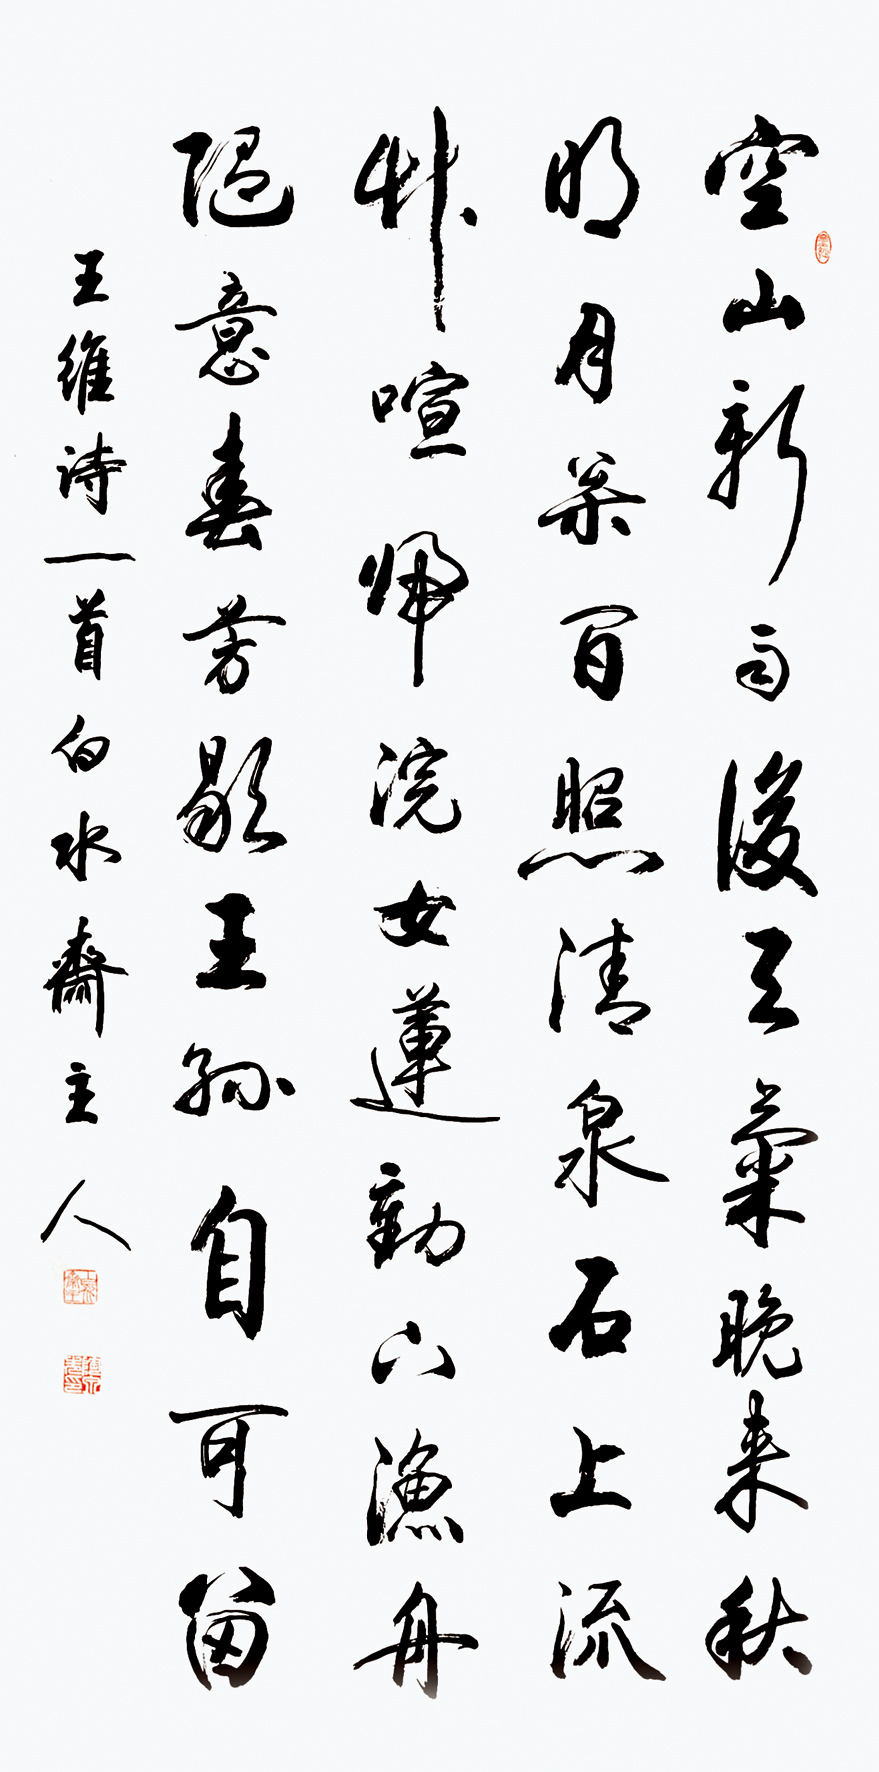 空山新雨後天氣晚来秋
明月松間照清泉石上流
竹喧歸浣女蓮動下漁舟
隨意春芳歇王孫自可留
王維詩一首白水齋主人